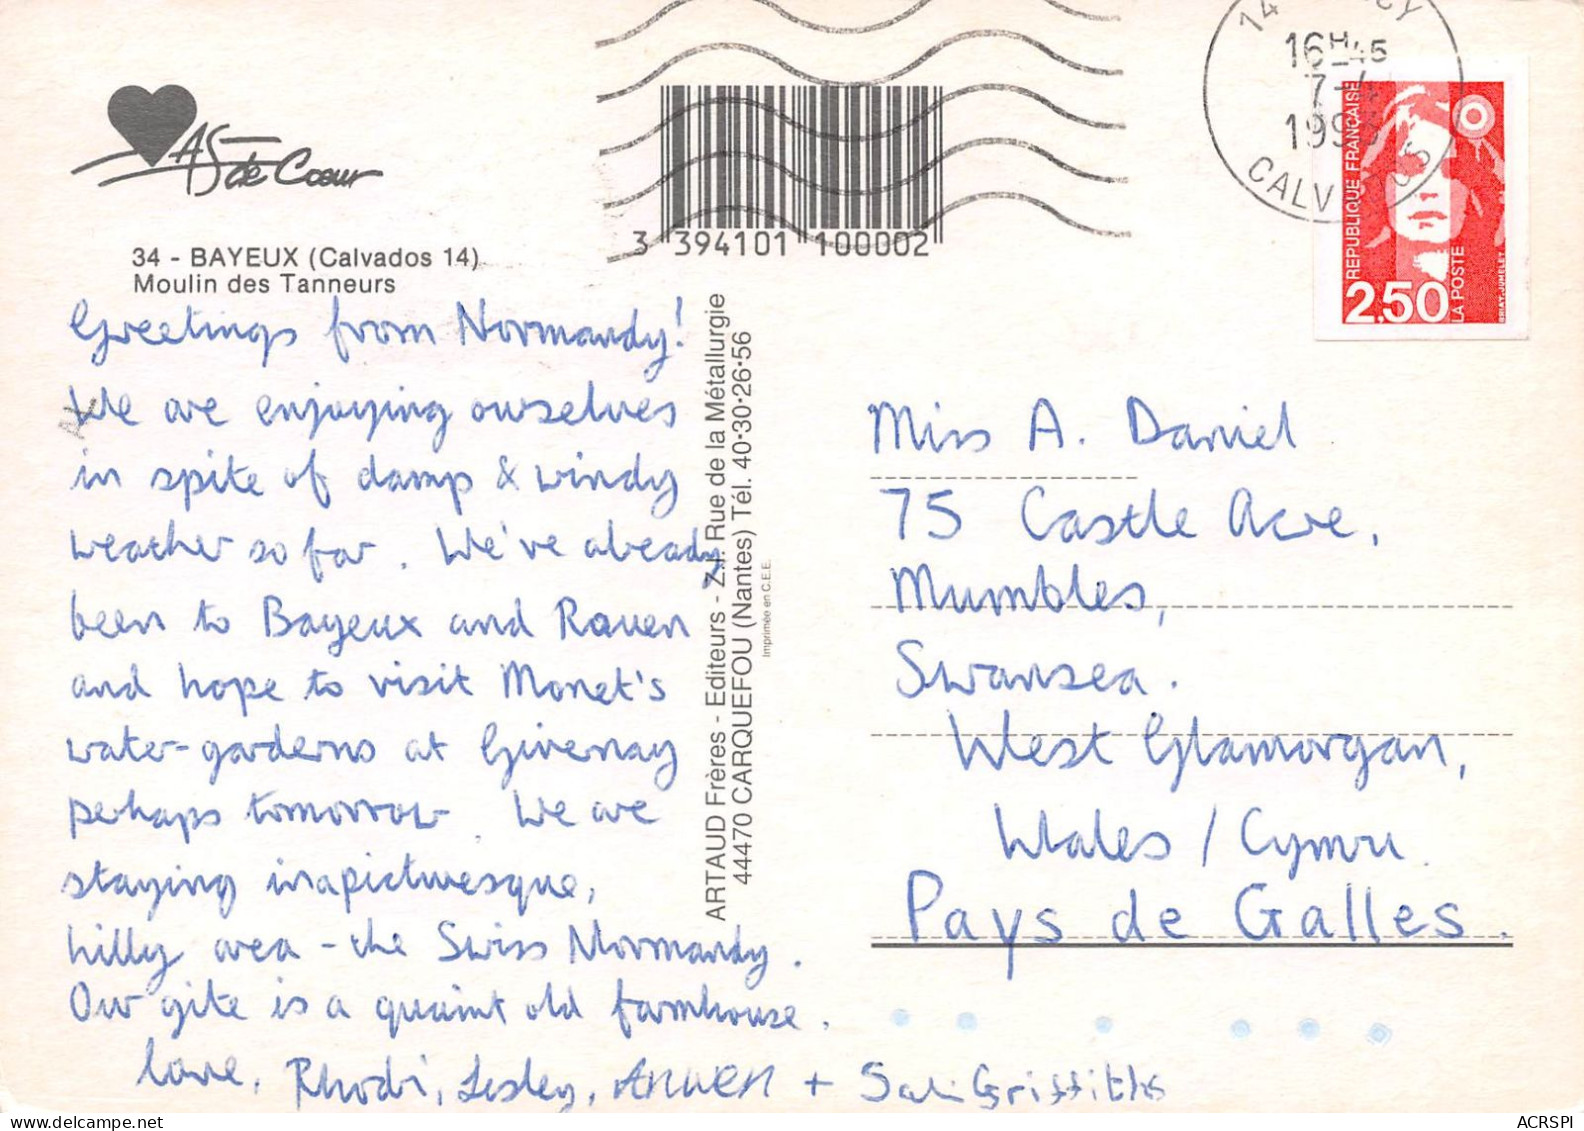 AS de Coeur
34 - BAYEUX (Calvados 14)
Moulin des Tanneurs
Greetings from Normandy!
We are enjoying ourselves
in spite of damp & windy
weather so far. We've already
been to Bayeux and Rouen
and hope to visit Monet's
water-gardens at Givernay
perhaps tomorrow. We are
staying in a picturesque,
hilly area - the Swiss Normandy.
Our gite is a quaint old farmhouse.
love, Rhodri, Lesley, Anwen + Sali Griffiths
3 394101 100002
ARTAUD Frères - Editeurs - Z.I. Rue de la Métallurgie
44470 CARQUEFOU (Nantes) Tél. 40·30·26·56
Imprimée en C.E.E.
16H45
7-4
CALVADOS
REPUBLIQUE FRANÇAISE
2,50
LA POSTE
BRIAT. JUMELET
Miss A. Daniel
75 Castle Acre,
Mumbles,
Swansea.
West Glamorgan,
Wales / Cymru.
Pays de Galles.
ACRSPI